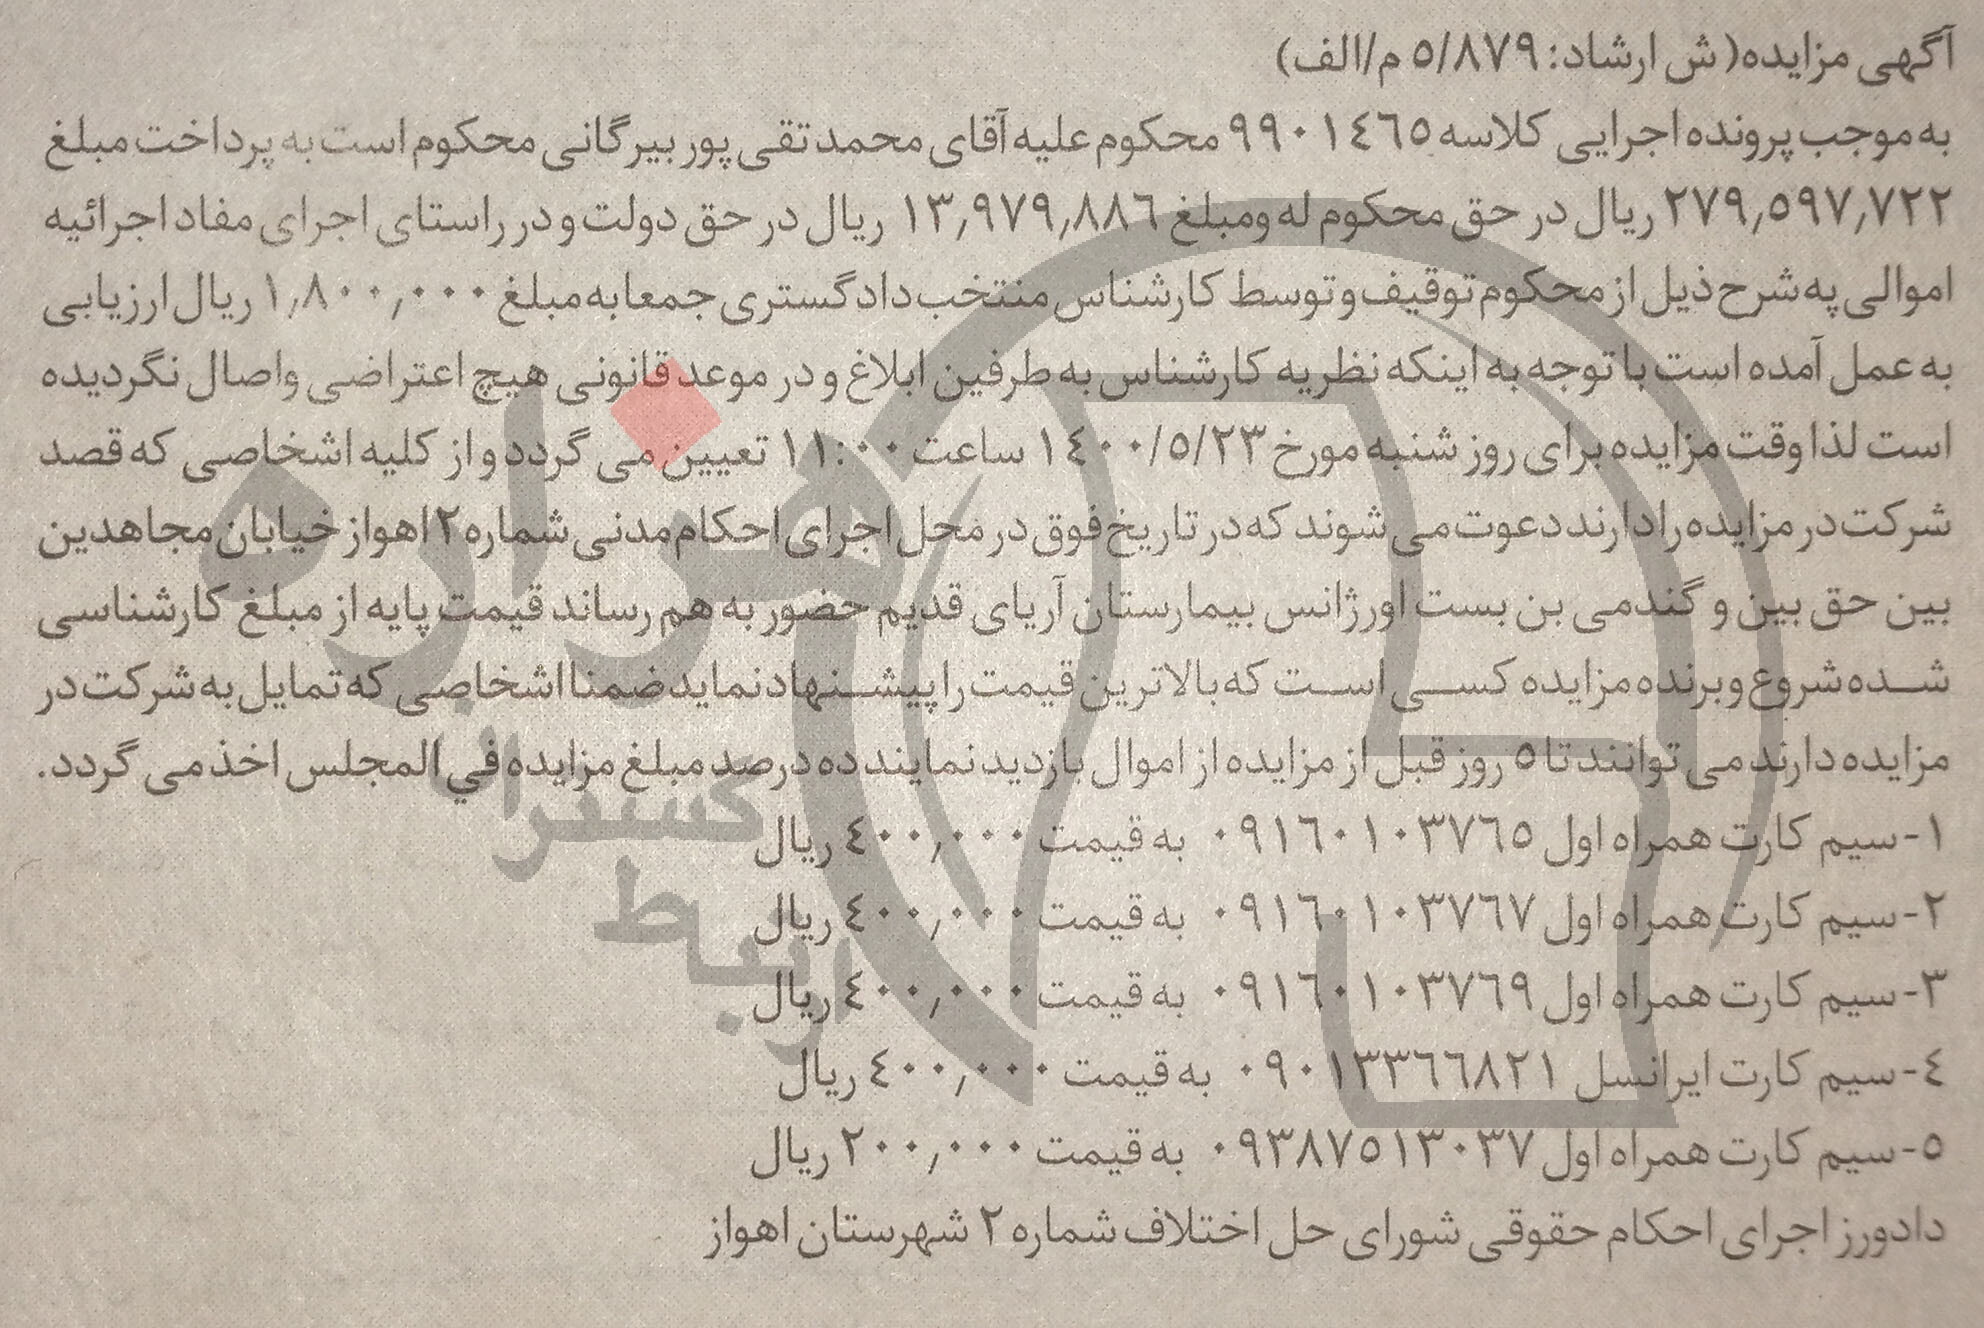 آگهی مزایده( ش ارشاد: ٥/٨٧٩ م/الف)
به موجب پرونده اجرایی کلاسه ٩٩٠١٤٦٥ محکوم علیه آقای محمد تقی پور بیرگانی محکوم است به پرداخت مبلغ
٢٧٩,٥٩٧,٧٢٢ ریال در حق محکوم له ومبلغ ١٣,٩٧٩,٨٨٦ ریال در حق دولت و در راستای اجرای مفاد اجرائیه
اموالی په شرح ذیل از محکوم توقیف و توسط کارشناس منتخب دادگستری جمعا به مبلغ ١,٨٠٠,٠٠٠ ریال ارزیابی
به عمل آمده است با توجه به اینکه نظریه کارشناس به طرفین ابلاغ و در موعد قانونی هیچ اعتراضی واصال نگردیده
است لذا وقت مزایده برای روز شنبه مورخ ١٤٠٠/٥/٢٣ ساعت ١١:٠٠ تعیین می گردد و از کلیه اشخاصی که قصد
شرکت در مزایده را دارند دعوت می شوند که در تاریخ فوق در محل اجرای احکام مدنی شماره ٢ اهواز خیابان مجاهدین
بین حق بین و گندمی بن بست اورژانس بیمارستان آریای قدیم حضور به هم رساند قیمت پایه از مبلغ کارشناسی
شده شروع و برنده مزایده کسی است که بالاترین قیمت را پیشنهاد نماید ضمنا اشخاصی که تمایل به شرکت در
مزایده دارند می توانند تا ٥ روز قبل از مزایده از اموال بازدید نمایند ده درصد مبلغ مزایده في المجلس اخذ می گردد.
١- سیم کارت همراه اول ٠٩١٦٠١٠٣٧٦٥ به قیمت ٤٠٠,٠٠٠ ریال
٢- سیم کارت همراه اول ٠٩١٦٠١٠٣٧٦٧ به قیمت ٤٠٠,٠٠٠ ریال
٣- سیم کارت همراه اول ٠٩١٦٠١٠٣٧٦٩ به قیمت ٤٠٠,٠٠٠ ریال
٤- سیم کارت ایرانسل ٠٩٠١٣٣٦٦٨٢١ به قیمت ٤٠٠,٠٠٠ ریال
٥- سیم کارت همراه اول ٠٩٣٨٧٥١٣٠٣٧ به قیمت ٢٠٠,٠٠٠ ریال
دادورز اجرای احکام حقوقی شورای حل اختلاف شماره ٢ شهرستان اهواز
هزاره
گستران
ارتباط